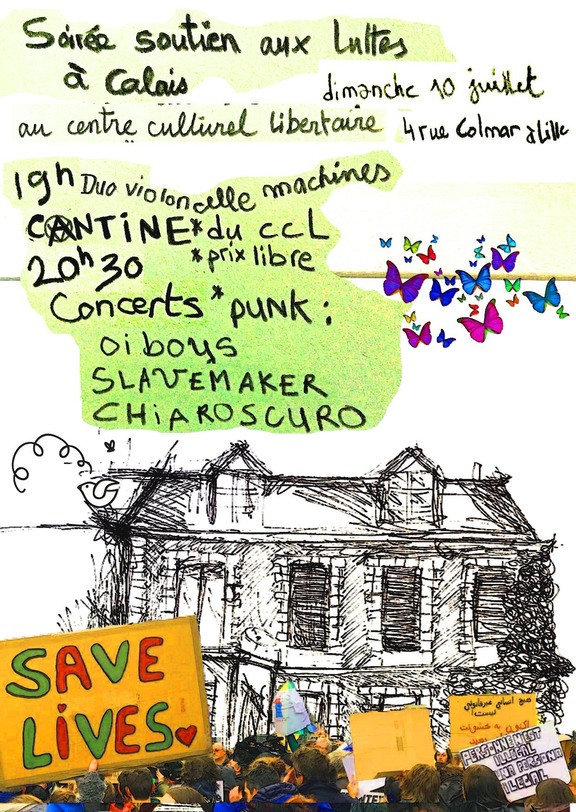 Soirée soutien aux luttes
à Calais
dimanche 10 juillet
au centre culturel libertaire
4 rue Colmar à Lille
19h Duo violoncelle machines
CANTINE * du CCL
* prix libre
20h30
Concerts * PUNK :
oi boys
SLAVEMAKER
CHiAROSCURO
SAVE
LiVES
هیچ انسانی غیرقانونی
نیست
PERSONNE N'EST
ILLEGAL
ILLEGAL